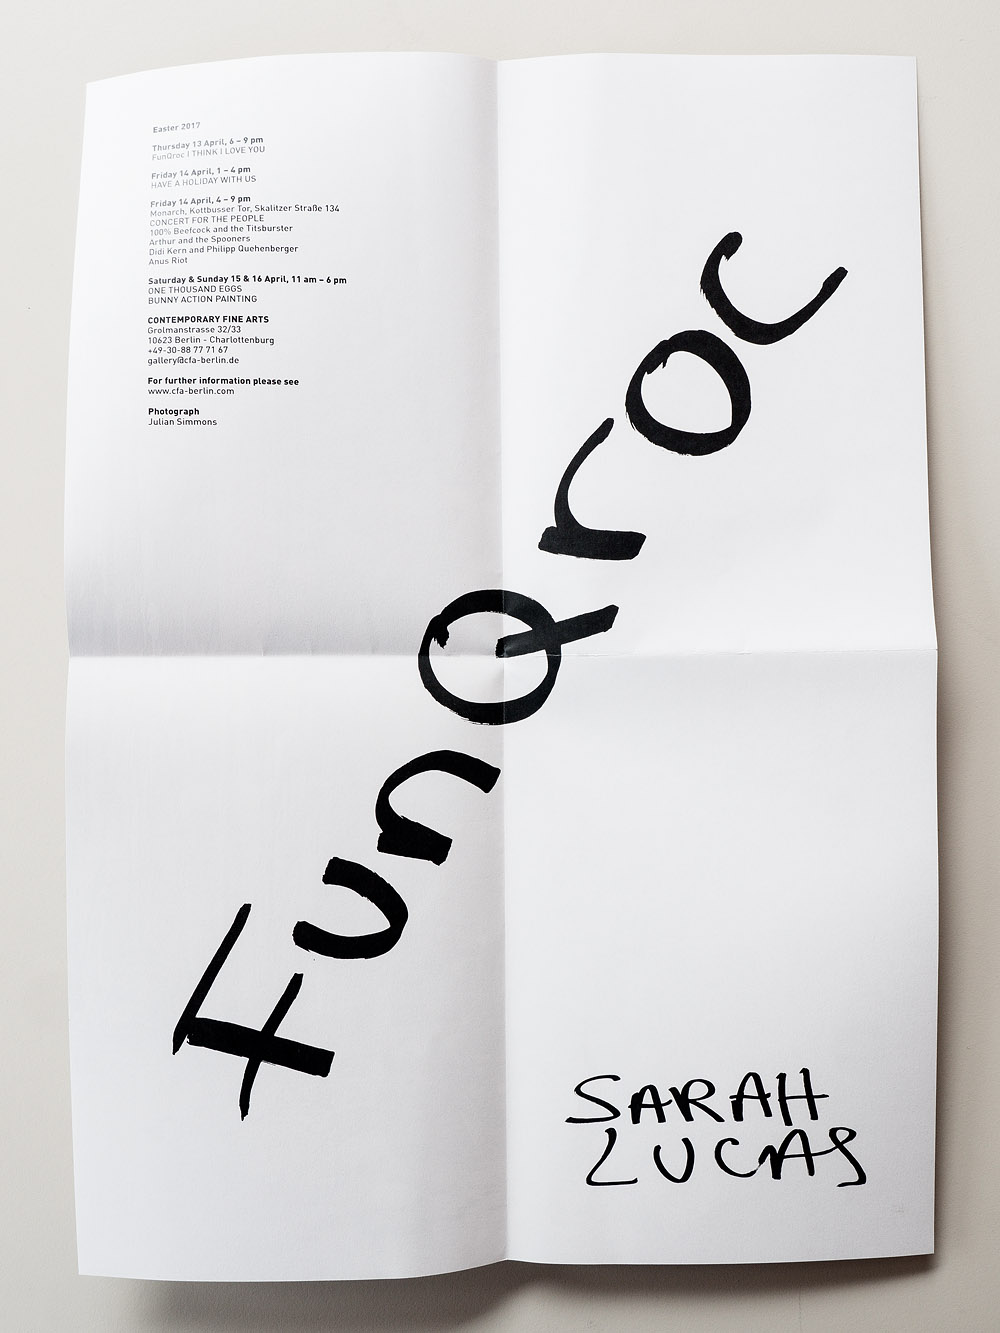 Easter 2017
Thursday 13 April, 6 – 9 pm
FunQroc I THINK I LOVE YOU
Friday 14 April, 1 – 4 pm
HAVE A HOLIDAY WITH US
Friday 14 April, 4 – 9 pm
Monarch, Kottbusser Tor, Skalitzer Straße 134
CONCERT FOR THE PEOPLE
100% Beefcock and the Titsburster
Arthur and the Spooners
Didi Kern and Philipp Quehenberger
Anus Riot
Saturday & Sunday 15 & 16 April, 11 am – 6 pm
ONE THOUSAND EGGS
BUNNY ACTION PAINTING
CONTEMPORARY FINE ARTS
Grolmanstrasse 32/33
10623 Berlin - Charlottenburg
+49-30-88 77 71 67
gallery@cfa-berlin.de
For further information please see
www.cfa-berlin.com
Photograph
Julian Simmons
FunQroc
SARAH
LUCAS